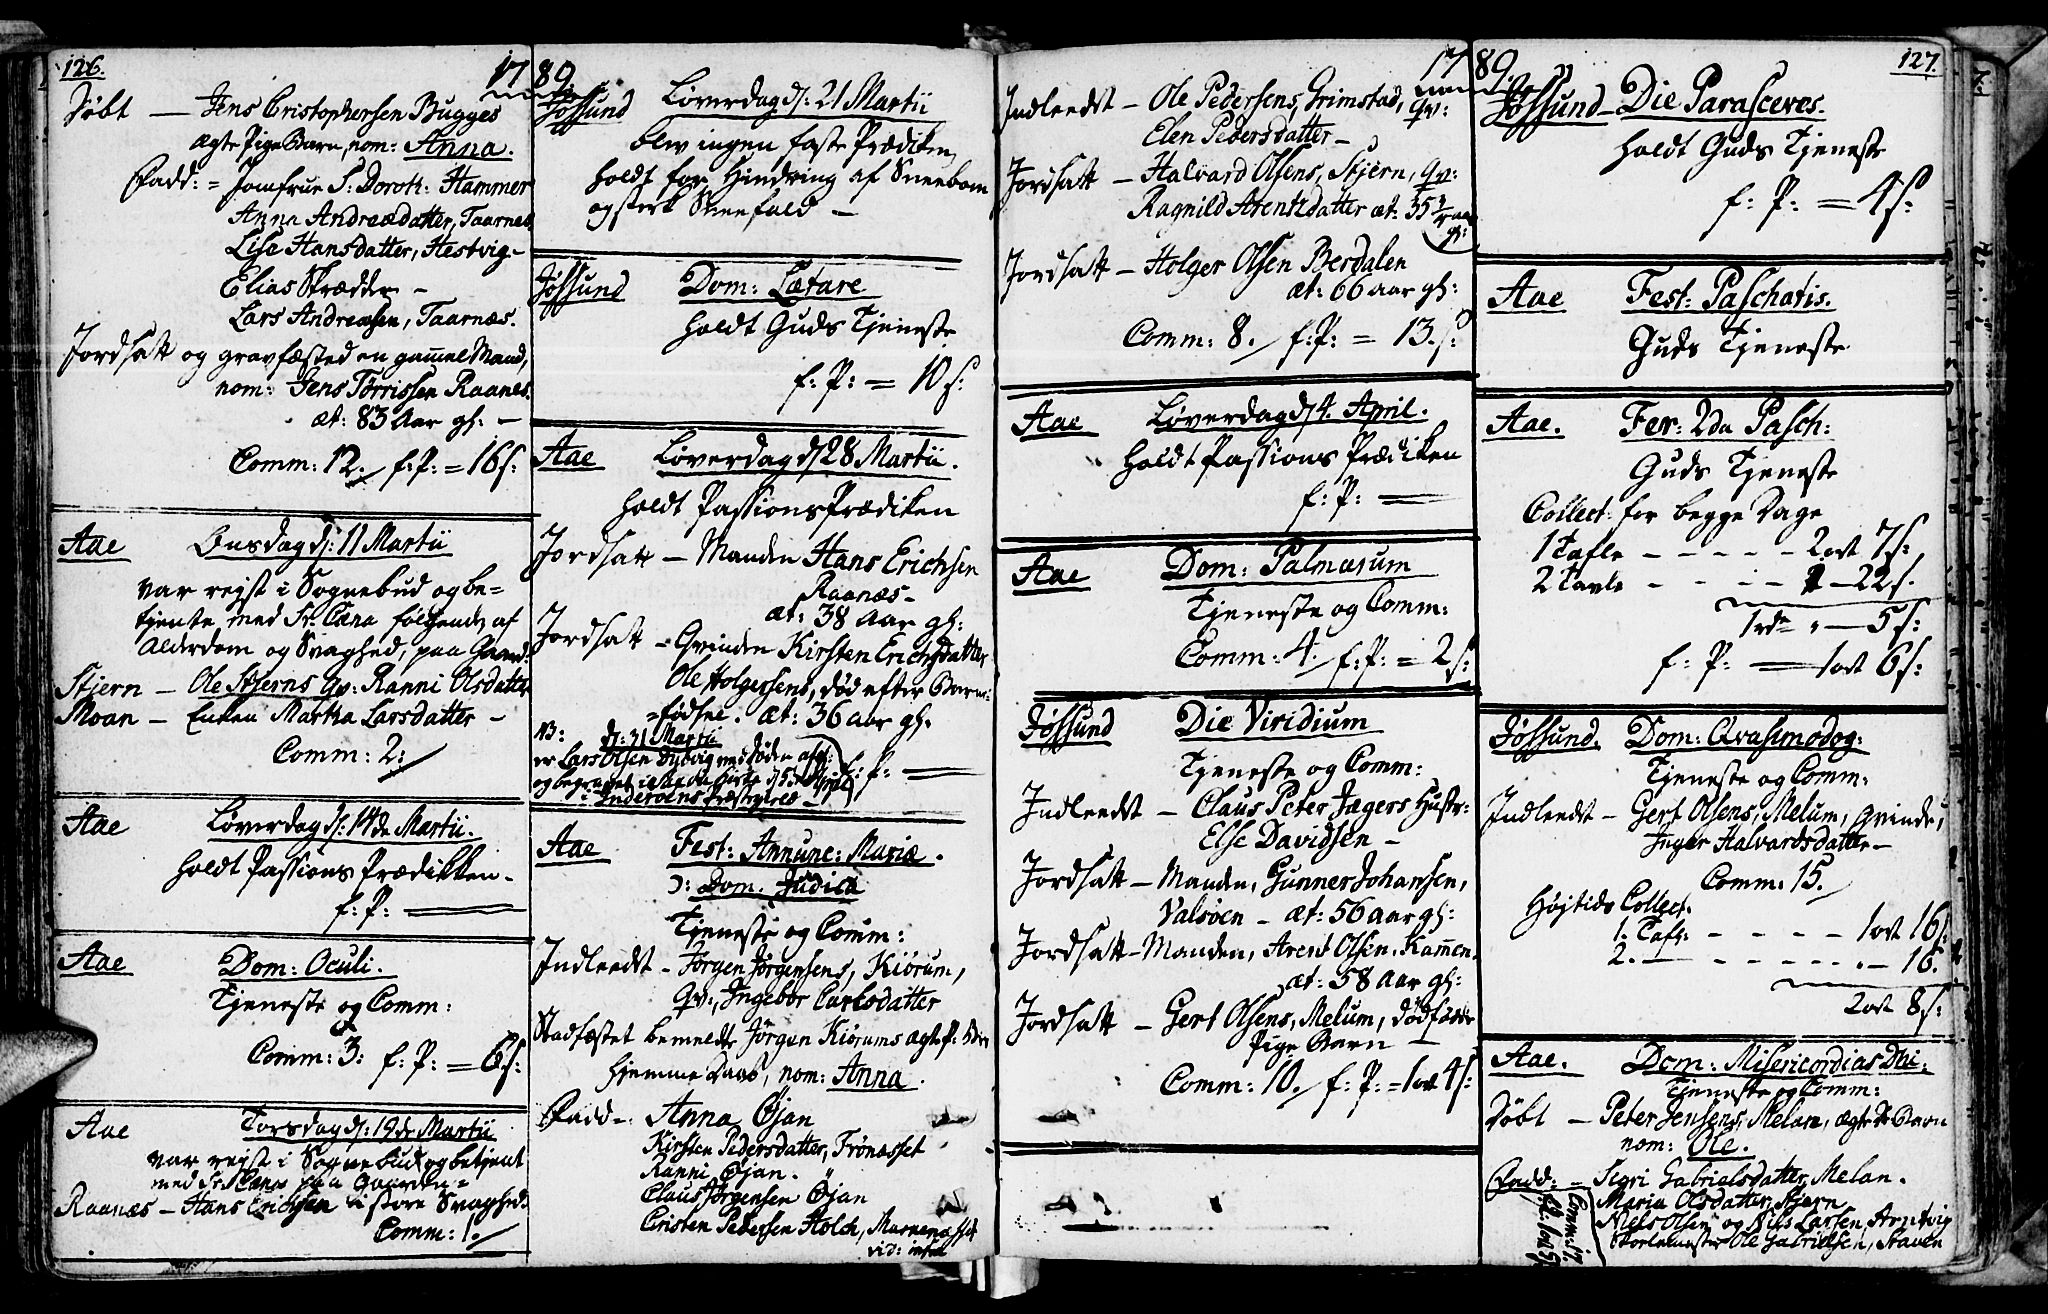 126.
1789
Døbt — Jens Cristophersen Bugges
ægte Pige Barn, nom: Anna.
Fadd: = Jomfrue S: Doroth: Hammer
Anna Andreædatter, Taarnes
Lise Hansdatter, Hestvig -
Elias Skrædder -
Lars Andreasen, Taarnæs.
Jordsatt og gravfæsted en gammel Mand,
nom: Jens Tørrissen Raanes.
æt: 83 Aar gl: —
Comm: 12. f: P: = 16 s:
Aae Onsdag d: 11 Martii
var rejst i Sognebud og be=
tjente med Sr: Cæna følgende af
Alderdom og Svaghed, paa Gaard:
Stjern — Ole Stjerns Qv: Ranni Olsdatter
Moan — Enken Martha Larsdatter -
Comm: 2:
Aae Løverdag d: 14de Martii.
holdt Passions Prædikken -
f: P: —
Aae Dom: Oculi.
Tjeneste og Comm:
Comm: 3: f: P: = 6 s:
Aae Torsdag d: 19de Martii
var rejst i Sognebud og betjent
med Sr: Cæna paa Gaarden =
Raanæs — Hans Erichsen i store Svaghed:
Comm: 1.
Jøssund Løverdag d: 21 Martii
blev ingen faste Prædiken
holdt for Hindring af Sneebom
og sterk Sneefald —
Jøssund Dom: Lætare
holdt Guds Tjeneste
f: P: = 10 s:
Aae Løverdag d 28 Martii.
holdt Passions Prædiken
Jordsatt — Manden Hans Erichsen
Raanæs -
æt: 38 Aar gl:
Jordsatt - Qvinden Kirsten Erichsdatter
Ole Holgersens, død efter Barne:
=fødsel. æt: 36 aar gl.
NB: d: 31 Martii
er Lars Olsen Dybvig ved Døden afg:
og begravet d 5te April
i Inderøens Præstegield
f: P: —
Aae Fest: Annunc: Mariæ.
ɔ: Dom. Judica
Tjeneste og Comm:
Indleedt - Jørgen Jørgensens, Kiørum,
Qv:, Ingebor Carlsdatter
Stadfæstet bemeldte Jørgen Kiørums ægte P: Barn
hjemme Daab, nom: Anna.
Fadd -: Anna Øjan
Kirsten Pedersdatter, Frønæsset
Ranni Øjan.
Claus Jørgensen Øjan
Cristen Pedersen Holch, Marnenæsset
vid: infra
1789.
127.
Indleedt — Ole Pedersens, Grimstad, Qv:
Elen Pedersdatter —
Jordsatt — Halvard Olsens, Stjern, Qv:
Ragnild Arentsdatter æt: 35 ½ aar
gl:
Jordsatt — Holger Olsen Berdalen
æt: 66 aar gl:
Comm: 8. f: P: = 13. s:
Aae Løverdag d 4. April.
holdt Passions Prædiken
f: P: —
Aae Dom: Palmarum
Tjeneste og Comm:
Comm: 4. f: P: = 2 s:
Jøssund Die Viridium
Tjeneste og Comm:
Indleedt — Claus Peter Jægers Hustr:
Else Davidsen —
Jordsatt — Manden, Gunner Johansen,
Valsøen — æt: 56 aar gl:
Jordsatt — Manden, Arent Olsen, Kammen,
æt: 58 Aar gl:
Jordsatt — Gert Olsens, Melum, dødfødde
Pige Barn —
Comm: 10. f: P: = 1 ort 4 s:
Jøssund — Die Parasceves.
holdt Guds Tjeneste
f: P: = 4 s:
Aae Fest: Paschatis.
Guds Tjeneste
Aae. Fer: 2da Pasch:
Guds Tjeneste
Collect: for begge Dage
1 Tafle - - - - - 2 ort 7 s:
2 Tavle - - - - 22 s.
1 rdr " — 5 s:
f: P: — 1 ort 6 s:
Jøssund. Dom: Qvasimodog:
Tjeneste og Comm:
Indleedt — Gert Olsens, Melum, Qvinde,
Inger Halvardsdatter —
Comm: 15.
Højtids Collect:
1. Tafl: - - - - - 1 ort 16 s:
2. — - - - - - " - 16.
2 ort 8 s:
Aae. Dom: Misericordias Dni:
Tjeneste og Comm:
Døbt — Peter Jensens, Melan, ægte Dr: Barn
nom: Ole.
Fadd: — Sigri Gabrielsdatter, Melan.
Maria Olsdatter, Stjern
Niels Olsen og Nils Larsen, Arntvig
Skolemester Ole Gabrielsen, Staven
Comm: 17.